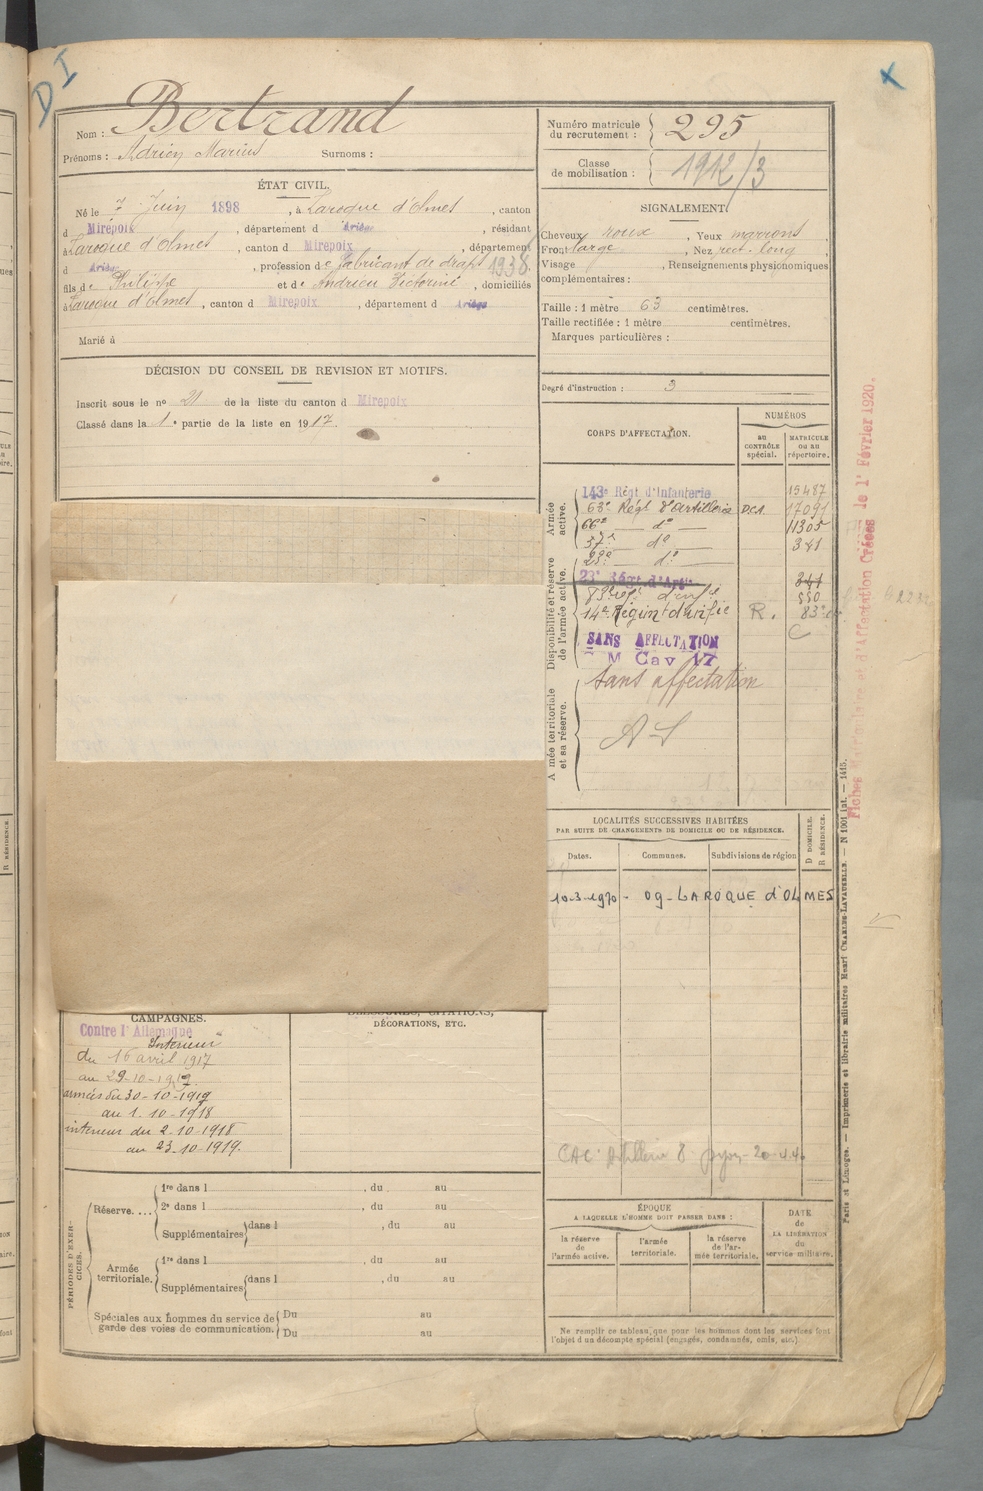 D I
Nom : Bertrand
Prénoms : Adrien Marius Surnoms :
ÉTAT CIVIL.
Né le 7 Juin 1898, à Laroque d'Olmes, canton
d Mirepoix, département d Ariège, résidant
à Laroque d'Olmes, canton d Mirepoix, département
d Ariège, profession de fabricant de drap 1938.
fils de Philippe et de Andrieu Victorine, domiciliés
à Laroque d'Olmes, canton d Mirepoix, département d Ariège
Marié à
DÉCISION DU CONSEIL DE REVISION ET MOTIFS.
Inscrit sous le nº 21 de la liste du canton d Mirepoix
Classé dans la 1e partie de la liste en 1917.
CAMPAGNES.
Contre l'Allemagne
Intérieur
du 16 avril 1917
au 29-10-1917
armées du 30-10-1917
au 1-10-1918
intérieur du 2-10-1918
au 23-10-1919.
DÉCORATIONS, ETC.
PÉRIODES D'EXERCICES.
Réserve....
1re dans l , du au
2e dans l , du au
Supplémentaires dans l , du au
Armée territoriale.
1re dans l , du au
Supplémentaires dans l , du au
Spéciales aux hommes du service de garde des voies de communication.
Du au
Du au
Numéro matricule du recrutement : 295
Classe de mobilisation : 1912/3
SIGNALEMENT.
Cheveux roux, Yeux marrons
Front large, Nez rect. long,
Visage , Renseignements physionomiques
complémentaires :
Taille : 1 mètre 63 centimètres.
Taille rectifiée : 1 mètre centimètres.
Marques particulières :
Degré d'instruction : 3
CORPS D'AFFECTATION.
NUMÉROS
au CONTRÔLE spécial.
MATRICULE ou au répertoire.
Armée active.
143e Régt d'Infanterie 15487
63e Régt d'Artillerie D.C.A. 17091
66e do 11305
37e do 341
23e do
Disponibilité et réserve de l'armée active.
23e Régt d'Art 341
83e regt d'infie 530
14e Régiment d'infie R. 83
SANS AFFECTATION C
M Cav 17
Armée territoriale et sa réserve.
Sans affectation
LOCALITÉS SUCCESSIVES HABITÉES
PAR SUITE DE CHANGEMENTS DE DOMICILE OU DE RÉSIDENCE.
Dates. Communes. Subdivisions de région
D DOMICILE. R RÉSIDENCE.
10-3-1970 - 09 - LAROQUE d'OLMES
CAC Artillerie 8 Dijon - 20-4-40
ÉPOQUE
A LAQUELLE L'HOMME DOIT PASSER DANS :
la réserve de l'armée active.
l'armée territoriale.
la réserve de l'armée territoriale.
DATE de LA LIBÉRATION du service militaire.
Ne remplir ce tableau que pour les hommes dont les services font
l'objet d'un décompte spécial (engagés, condamnés, omis, etc.)
Fiches Matriculaire et d'Affectation Créées le 1er Février 1920.
Paris et Limoges. — Imprimerie et librairie militaires Henri CHARLES-LAVAUZELLE. — N 1001 int. — 1415.